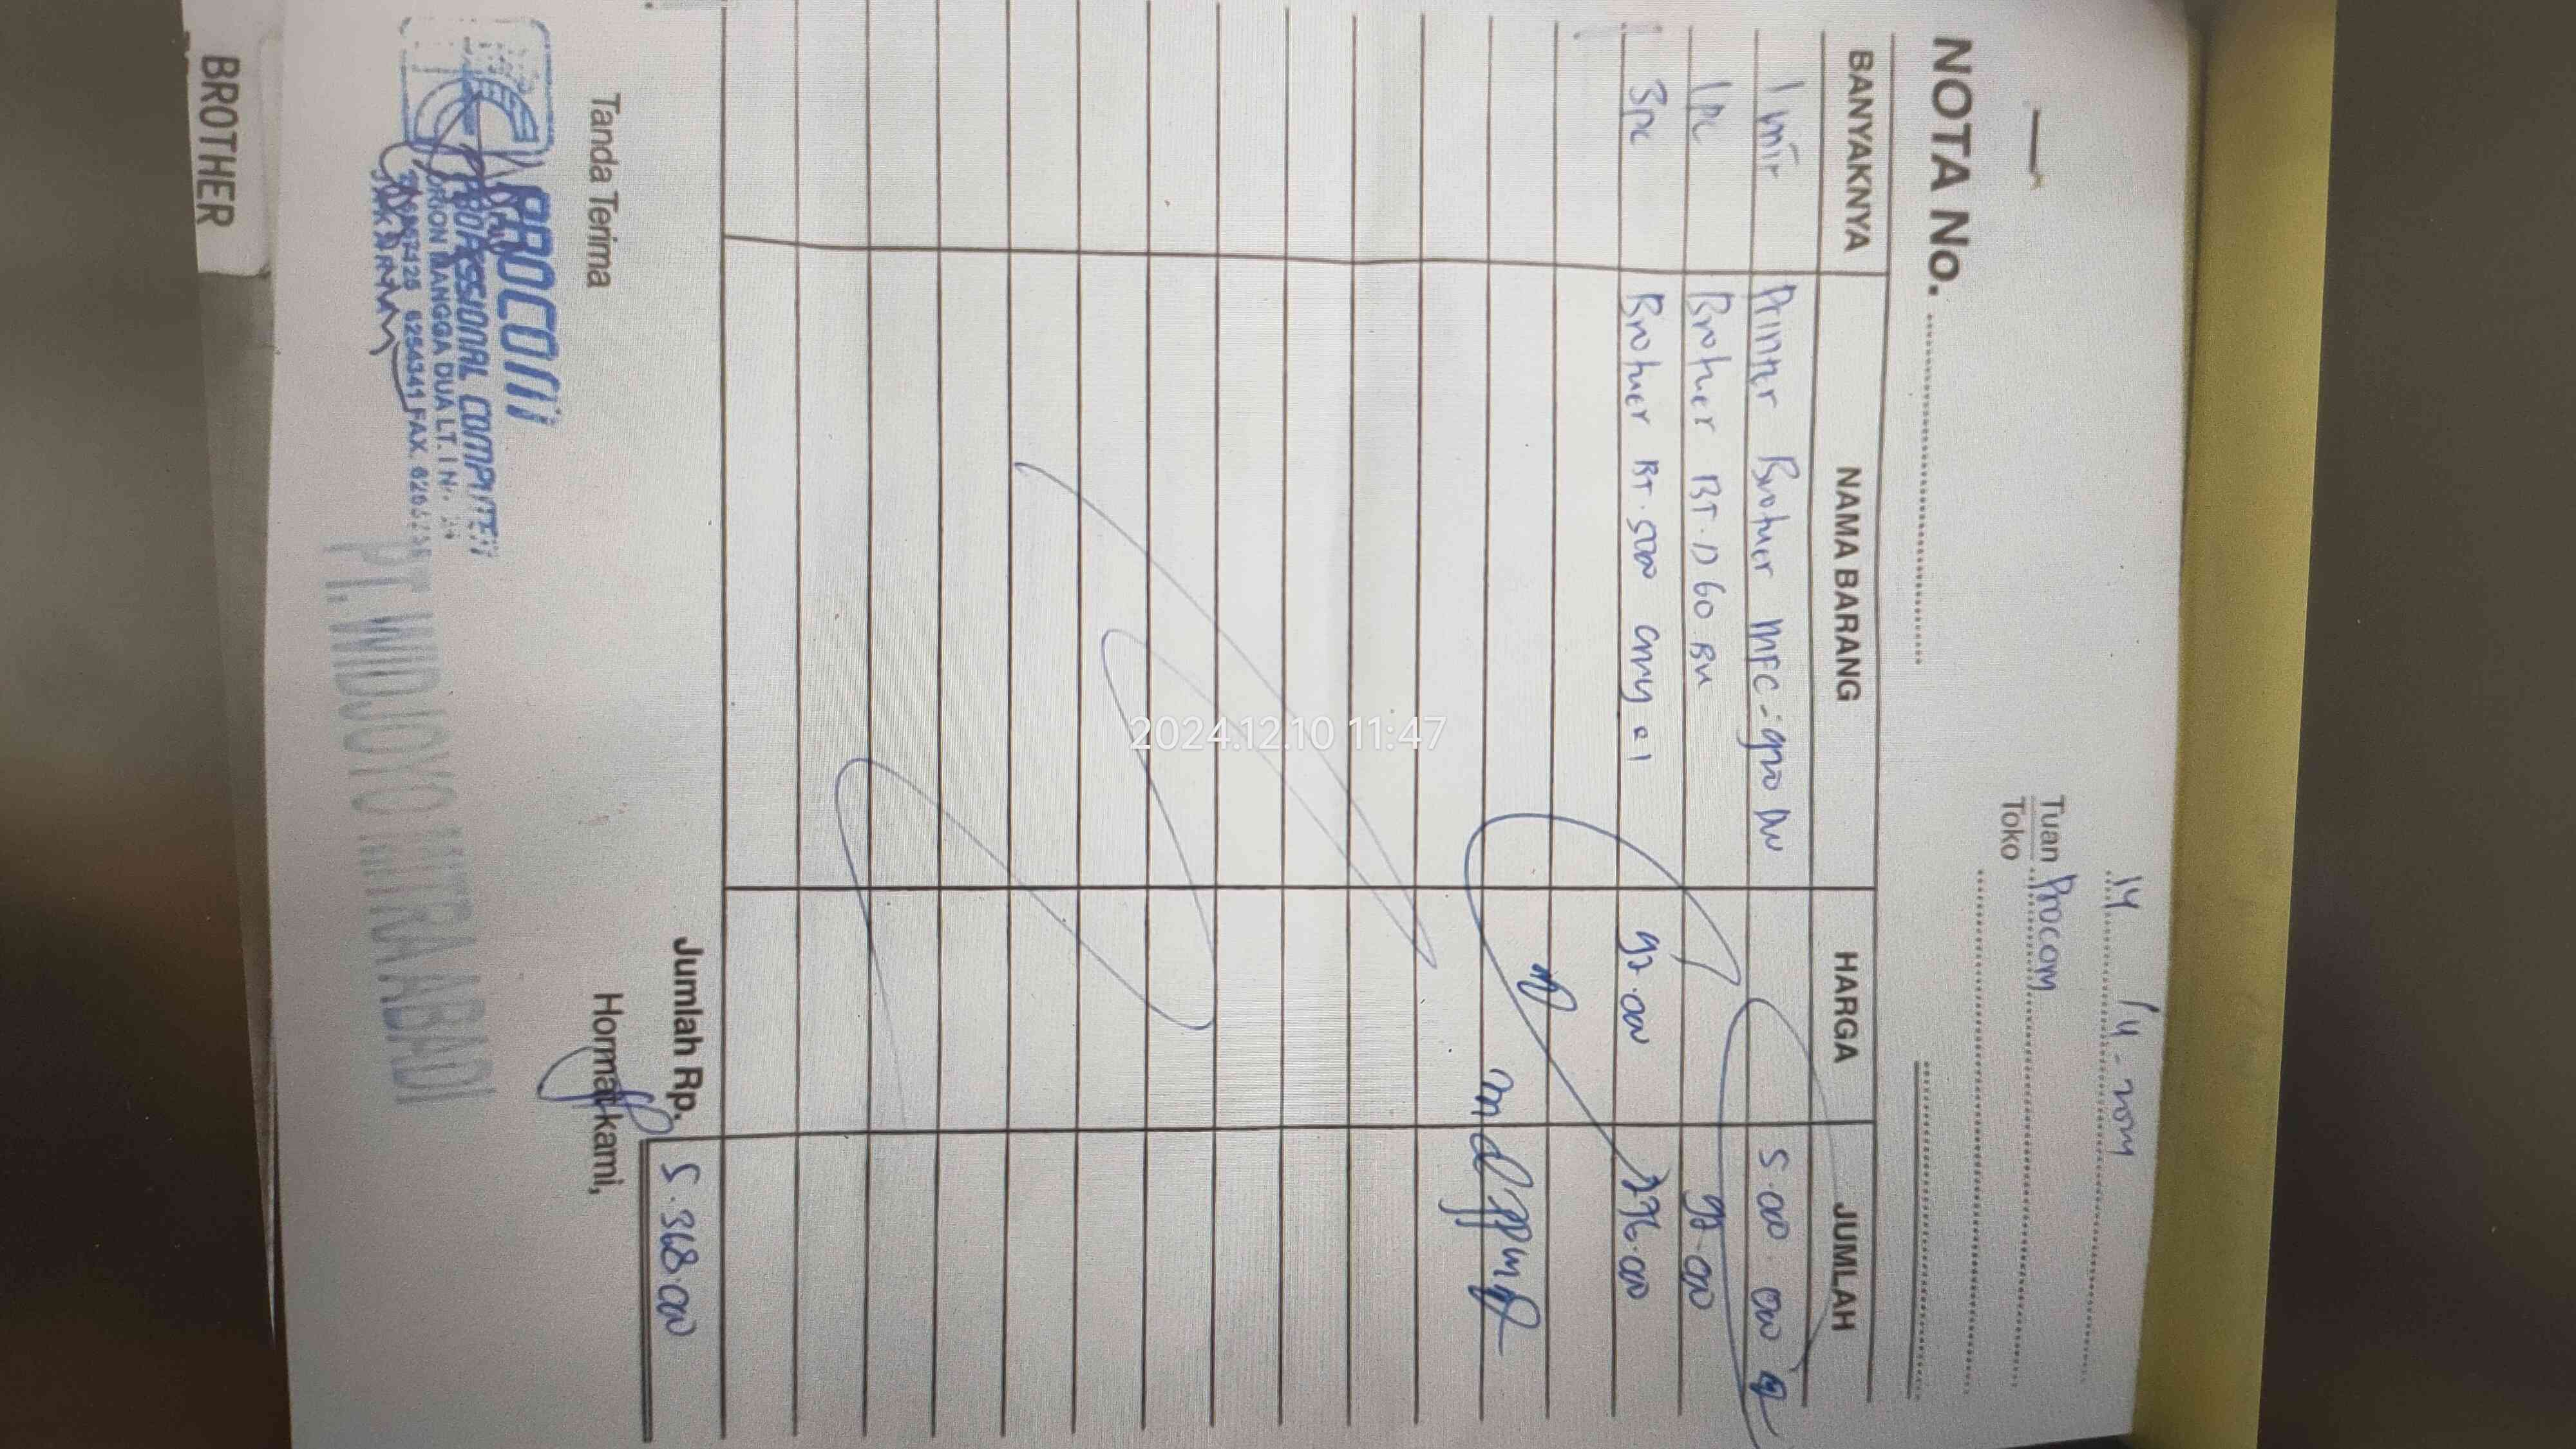 14
Tuan Procom
Toko
NOTA No.
BANYAKNYA NAMA BARANG HARGA JUMLAH
1 Printer Brother MFC- DW 5.000.000
1 pc Brother BT.D60 BK 92.000
3pc Brother BT.5000 CMY @1 92.000 276.000
Jumlah Rp. 5.368.000
Tanda Terima Hormat kami,
PROCOM
PROFESSIONAL COMPUTER
ORION MANGGA DUA LT. I No.
6254341 FAX.
JAKARTA
PT. WIDJOYO MITRA ABADI
BROTHER
2024.12.10 11:47